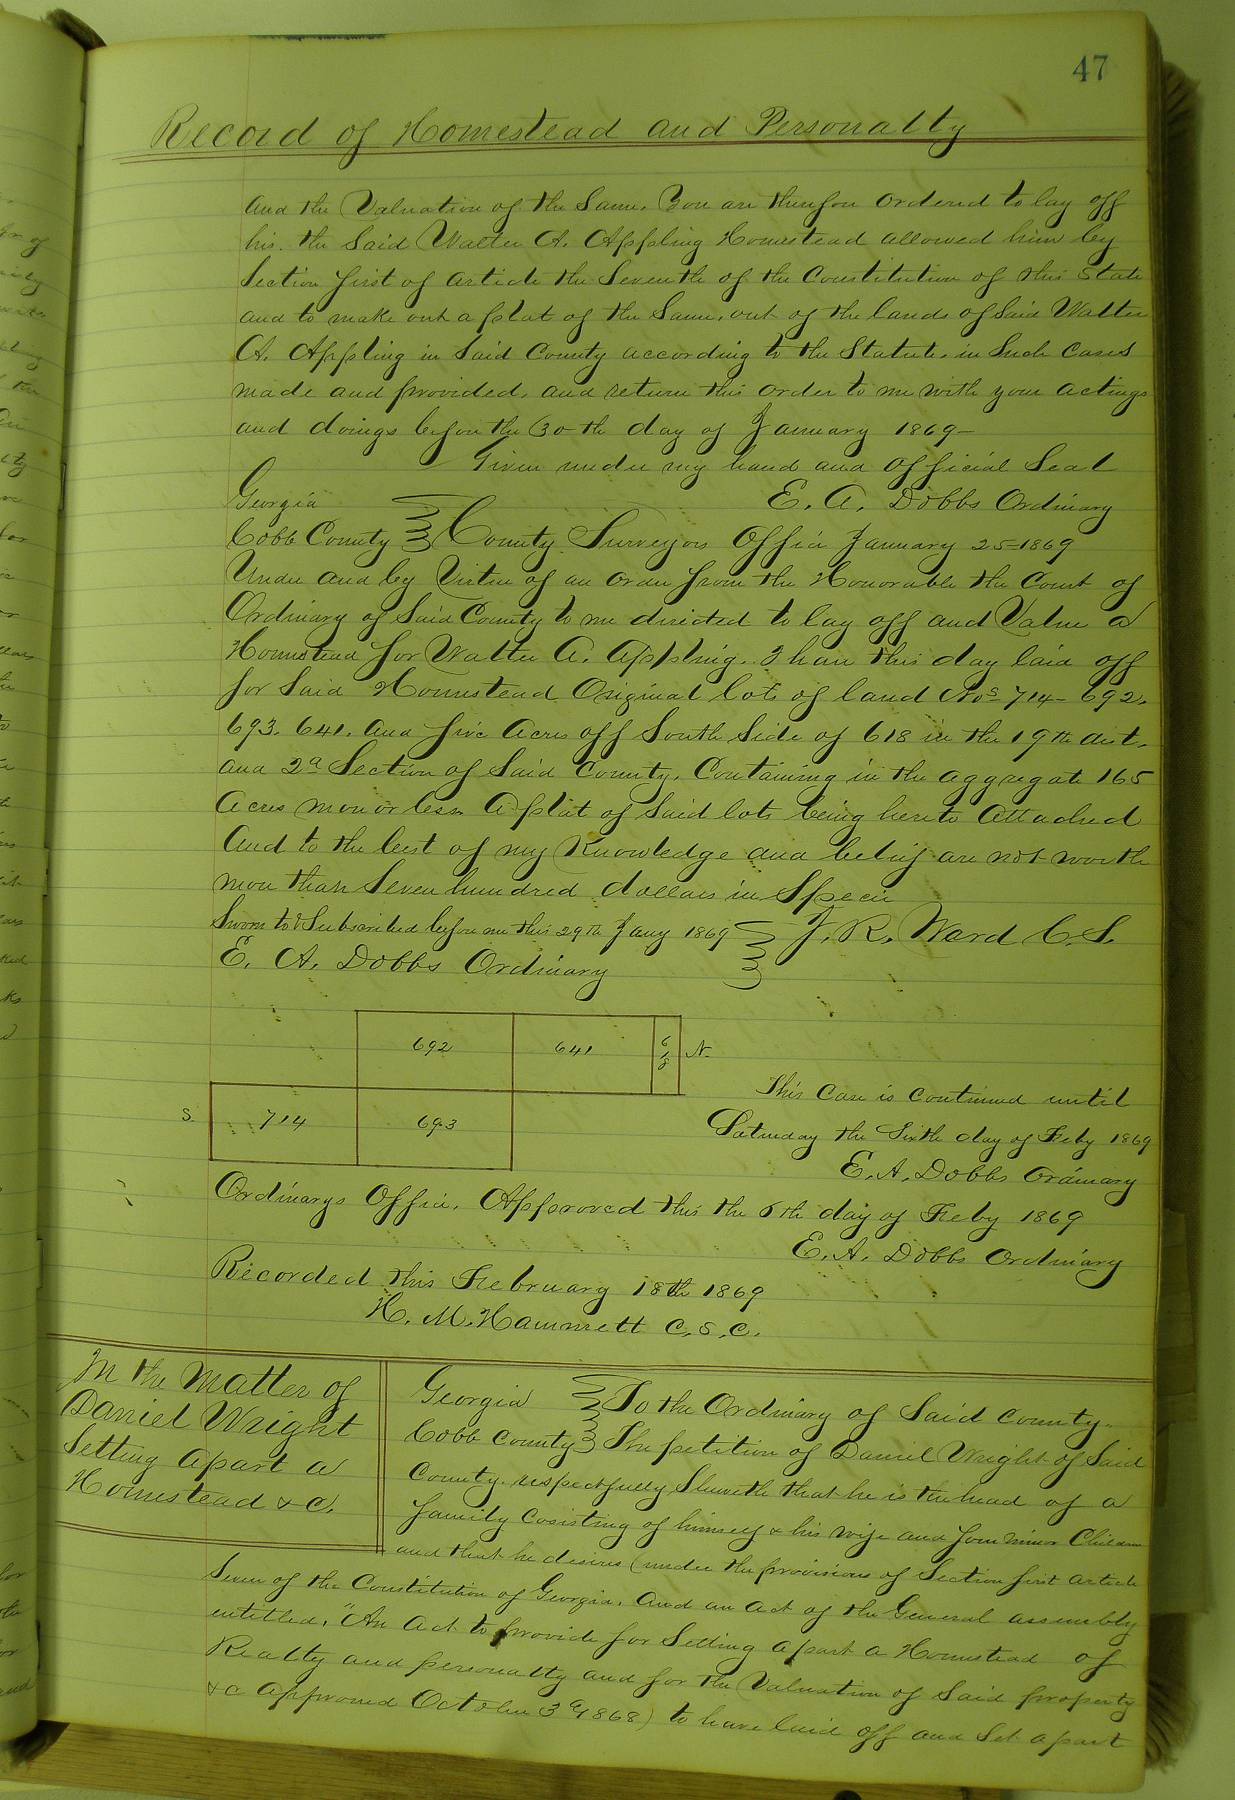 47
Record of Homestead and Personalty
and the Valuation of the Same. You are therefore ordered to lay off
his. the Said Walter A. Appling Homestead allowed him by
Section first of article the Seventh of the Constitution of this State
and to make out a plat of the Same, out of the lands of Said Walter
A. Appling in Said County according to the Statute. in Such Cases
made and provided. and return this order to me with your actings
and doings before the 30th day of January 1869—
Given under my hand and official Seal
Georgia E. A. Dobbs Ordinary
Cobb County County Surveyors Office January 25–1869
Under and by Virtue of an order from the Honorable the Court of
Ordinary of Said County to me directed to lay off and Value a
Homestead for Walter A. Appling. I have this day laid off
for Said Homestead Original lots of land Nos 714– 692.
693. 641. and five acres off South Side of 618 in the 19th dist.
and 2d Section of Said County. Containing in the aggregate 165
Acres more or less A plat of Said lots being hereto Attached
And to the best of my Knowledge and belief are not worth
more than Seven hundred dollars in Specie
Sworn to & Subscribed before me this 29th Jany 1869 J. R. Ward C. S.
E. A. Dobbs Ordinary
692 641 618 N.
S. 714 693
This Case is continued until
Saturday the Sixth day of Feby 1869
E. A. Dobbs Ordinary
Ordinarys Office. Approved this the 6th day of Feby 1869
E. A. Dobbs Ordinary
Recorded this February 18th 1869
H. M. Hammett C. S. C.
In the Matter of
Daniel Wright
Setting apart a
Homestead &c.
Georgia To the Ordinary of Said County.
Cobb County The petition of Daniel Wright of Said
County. respectfully Sheweth that he is the head of a
family Cosisting of himself & his wife and four minor Children
and that he desires (under the provisions of Section first article
Seven of the Constitution of Georgia. And an act of the General assembly
entitled, "An Act to provide for Setting apart a Homestead of
Realty and personalty and for the Valuation of Said property
&c approved October 3d 1868) to have laid off and Set apart